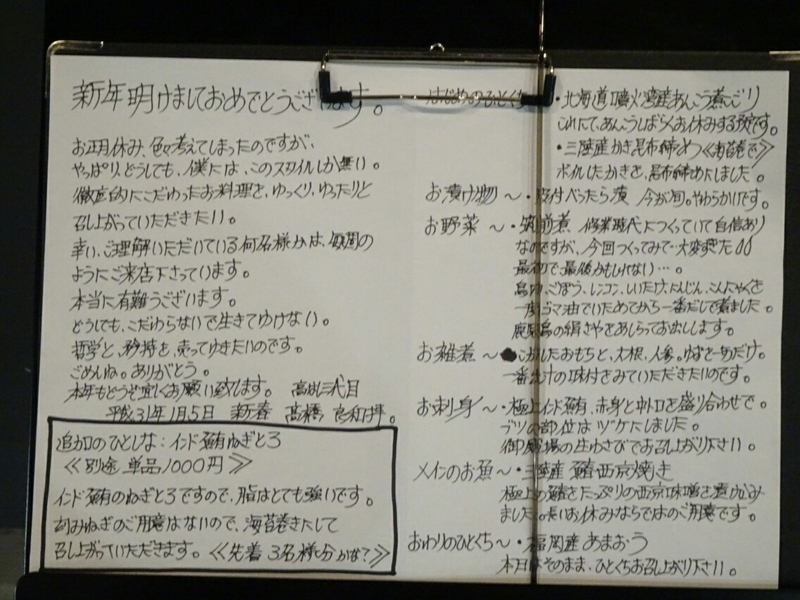 新年明けましておめでとうございます。
お正月休み、色々考えてしまったのですが、
やっぱりどうしても、僕には、このスタイルしか無い。
徹底的にこだわったお料理を、ゆっくり、ゆったりと
召し上がっていただきたい。
幸い、ご理解いただいている何名様かは、毎週の
ようにご来店下さっています。
本当に有難うございます。
どうしても、こだわらないで生きてゆけない。
哲学と、矜持を、売ってゆきたいのです。
ごめいね。ありがとう。
本年もどうぞ宜しくお願い致します。 三代目
平成31年1月5日 新春 高橋
追加のひとしな:インド鮪ねぎとろ
≪別途 単品1000円≫
インド鮪のねぎとろですので、脂はとても強いです。
刻みねぎのご用意はないので、海苔巻きにして
召し上がっていただきます。≪先着 3名様分かな?≫
はじめのひとくち
・北海道噴火湾産あんこう煮こごり
これにて、あんこうしばらくお休みする予定です。
・三陸産かき昆布締め≪海苔巻で≫
ボイルしたかきを、昆布締めにしました。
お漬け物〜・皮付べったら漬 今が旬。やわらかいです。
お野菜〜・筑前煮 修業時代につくっていて自信あり
なのですが、今回つくってみて…大変すぎた
最初で、最後かもしれない…。
鳥肉、ごぼう、レンコン、しいたけ、にんじん、こんにゃくを
一度ゴマ油でいためてから一番だしで煮ました。
鹿児島の絹さやをあしらってお出しします。
お雑煮〜 こがしたおもちと、大根、人参。ゆずを一切だけ。
一番出汁の味付をみていただきたいのです。
お刺身〜・極上インド鮪、赤身と中トロを盛り合わせで。
ブツの部位はヅケにしました。
御殿場の生わさびでお召し上がり下さい。
メインのお魚〜・三陸産 鱈西京焼き
極上の鱈をたっぷりの西京味噌で
ました。長いお休みならではのご用意です。
おわりのひとくち〜・福岡産あまおう
本日はそのまま、ひとくちお召し上がり下さい。